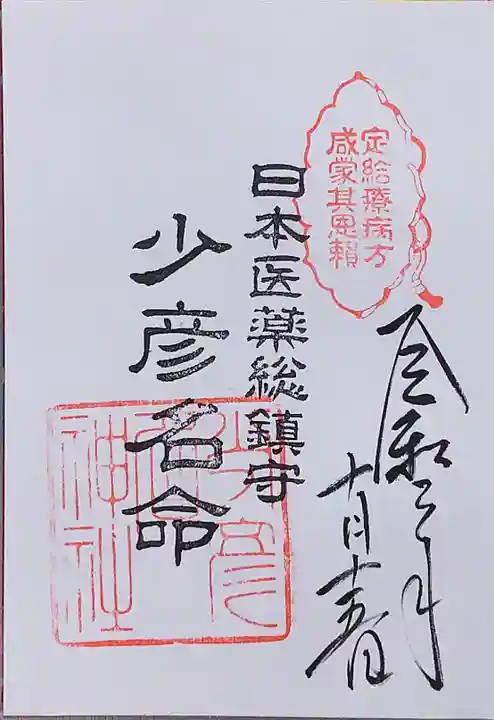 定給療病方
咸蒙其恩頼
令和二年
十月十五日
日本医薬総鎮守
少彦名命
少彦名
神社